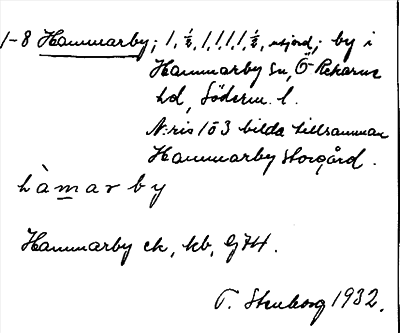 1-8 Hammarby; 1, ½, 1, 1, 1, 1, ½, utjord; by i
Hammarby sn, Ö Rekarne
hd, Söderm. l.
N:ris 1 o 3 bilda tillsamman
Hammarby storgård.
hàmarby
Hammarby ek, kb, Gj74.
T. Stenborg 1932.